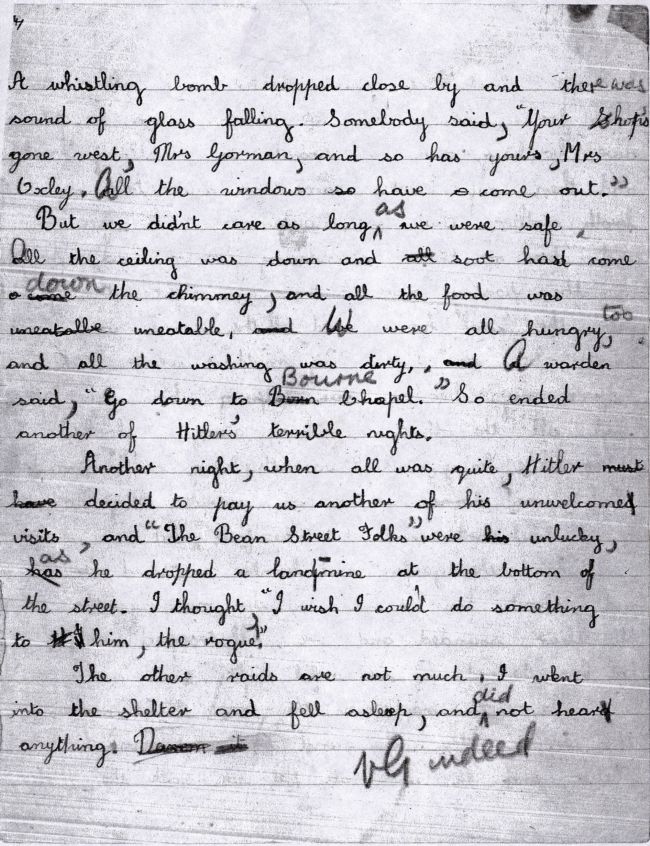 4
A whistling bomb dropped close by and there was
sound of glass falling. Somebody said, "Your Shop's
gone west, Mrs Gorman, and so has yours, Mrs
Oxley. All the windows so have come out."
But we did'nt care as long as we were safe.
All the ceiling was down and all soot had come
come down the chimney, and all the food was
uneatalbe uneatable, and We were all hungry, too
and all the washing was dirty, and A warden
said, "Go down to Bourne Chapel." So ended
another of Hitlers' terrible nights.
Another night, when all was quite, Hitler must
have decided to pay us another of his unwelcomed
visits, and "The Bean Street Folks" were his unlucky,
has as he dropped a land-mine at the bottom of
the street. I thought, "I wish I could do something
to him, the rogue."
The other raids are not much. I went
into the shelter and fell asleep, and did not heard
anything.
VG indeed